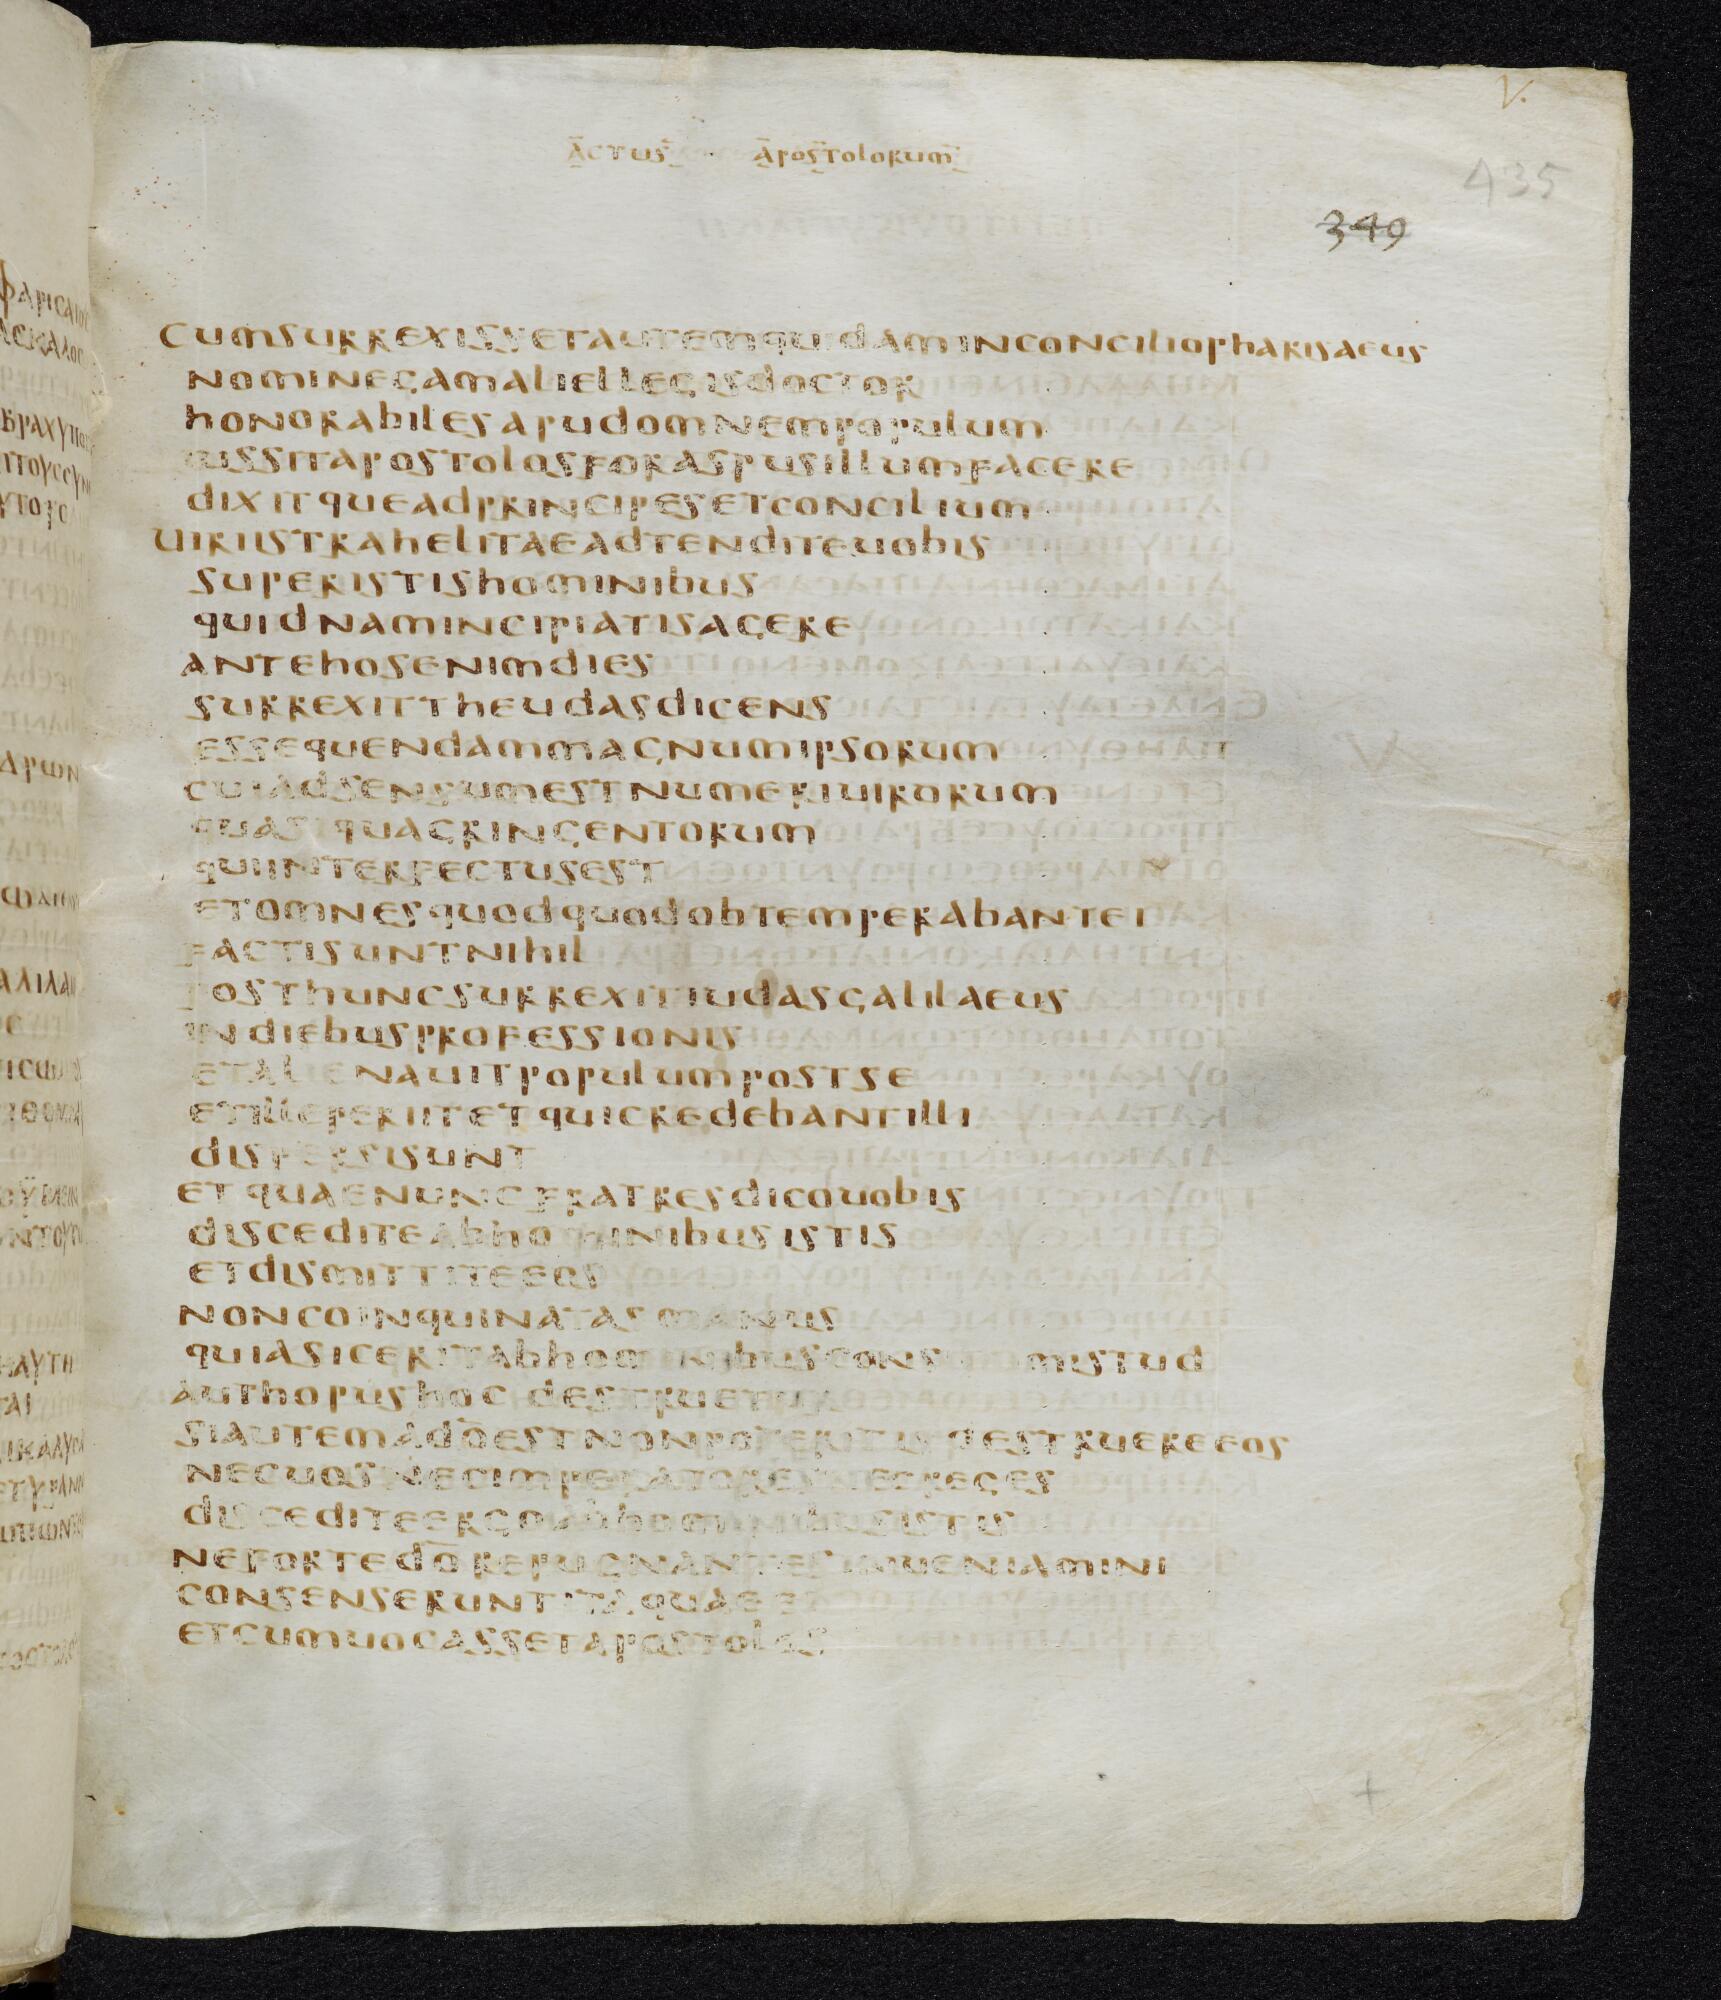 V.
ACTUS APOSTOLORUM
435
349
CUMSURREXISSETAUTEMQUIDAMINCONCILIOPHARISAEUS
NOMINEGAMALIELLEGISDOCTOR
HONORABILESAPUDOMNEMPOPULUM
IUSSITAPOSTOLOSFORASPUSILLUMFACERE
DIXITQUEADPRINCIPESETCONCILIUM
UIRIISTRAHELITAEADTENDITEUOBIS
SUPERISTISHOMINIBUS
QUIDNAMINCIPIATISAGERE
ANTEHOSENIMDIES
SURREXITTHEUDASDICENS
ESSEQUENDAMMAGNUMIPSORUM
CUIADSENSUMESTNUMERIUIRORUM
QUASIQUAGRINGENTORUM
QUIINTERFECTUSEST
ETOMNESQUODQUODOBTEMPERABANTEI
FACTISUNTNIHIL
POSTHUNCSURREXITIUDASGALILAEUS
INDIEBUSPROFESSIONIS
ETALIENAUITPOPULUMPOSTSE
ETILLEPERIITETQUICREDEBANTILLI
DISPERSISUNT
ETQUAENUNCFRATRESDICOUOBIS
DISCEDITEABHOMINIBUSISTIS
ETDISMITTITEEOS
NONCOINQUINATASMANUS
QUIASICERITABHOMINIBUSCONSI MISTUD
AUTHOPUSHOC DESTRUETUR
SIAUTEMADDOESTNONPOTERITISDESTRUEREEOS
NECUOSNECIMPERATORESNECREGES
DISCEDITEERGOABHOMINIBUSISTIS
NEFORTEDOREPUGNANTESINUENIAMINI
CONSENSERUNTITAQUAEEI
ETCUMUOCASSETAPOSTOLOS